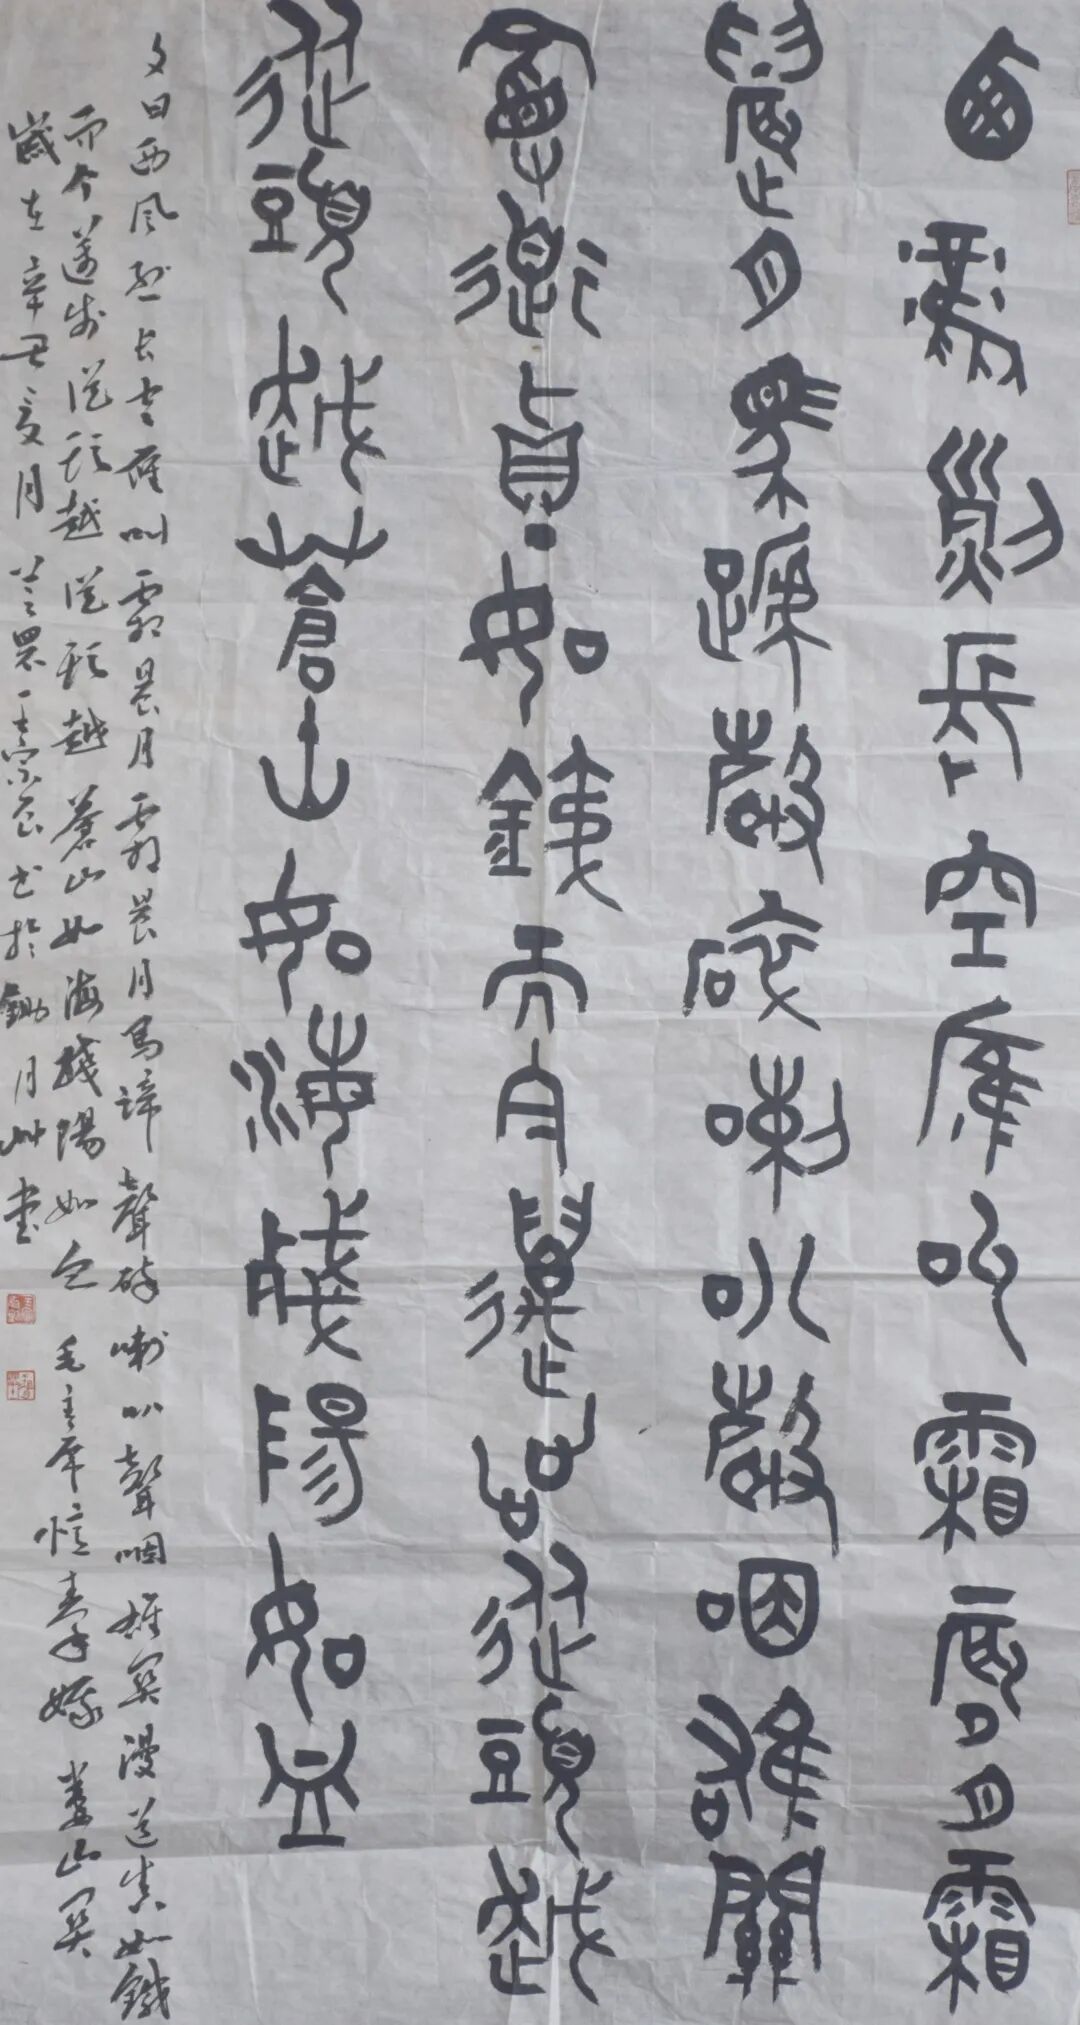 西風烈長空雁叫霜晨月霜
晨月馬蹄聲碎喇叭聲咽雄關
漫道真如鐵而今邁步從頭越
從頭越蒼山如海殘陽如血
文曰西風烈長空雁叫霜晨月霜晨月馬蹄聲碎喇叭聲咽雄関漫道真如鐵
而今邁步從頭越從頭越蒼山如海殘陽如血毛主席憶秦娥婁山関
歲在辛丑夏月芝罘王宗书於鋤月艸堂